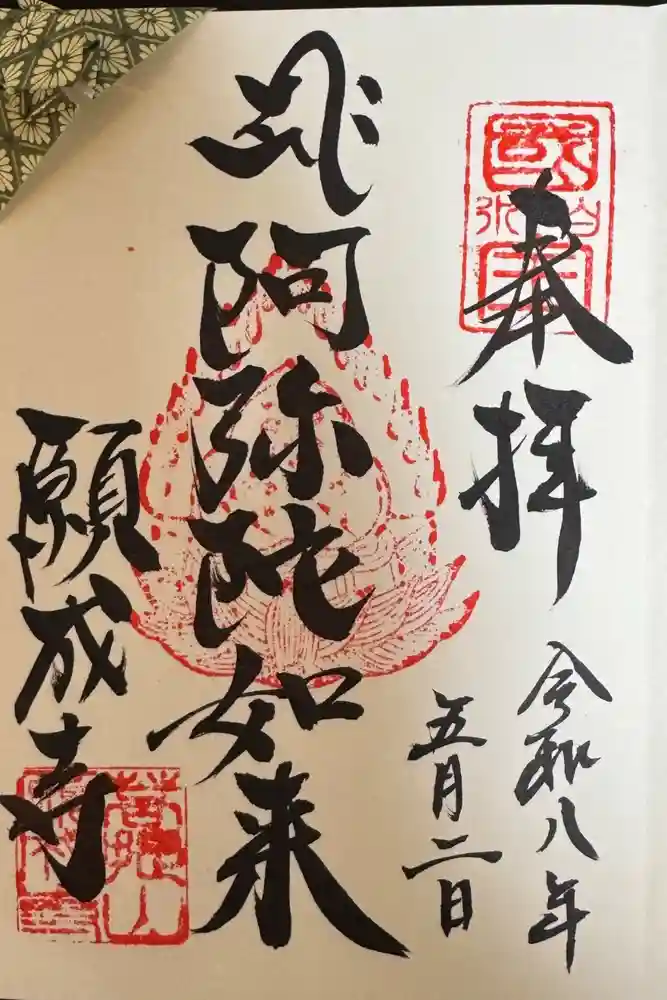 奉拝
令和八年
五月二日
阿弥陀如来
願成寺